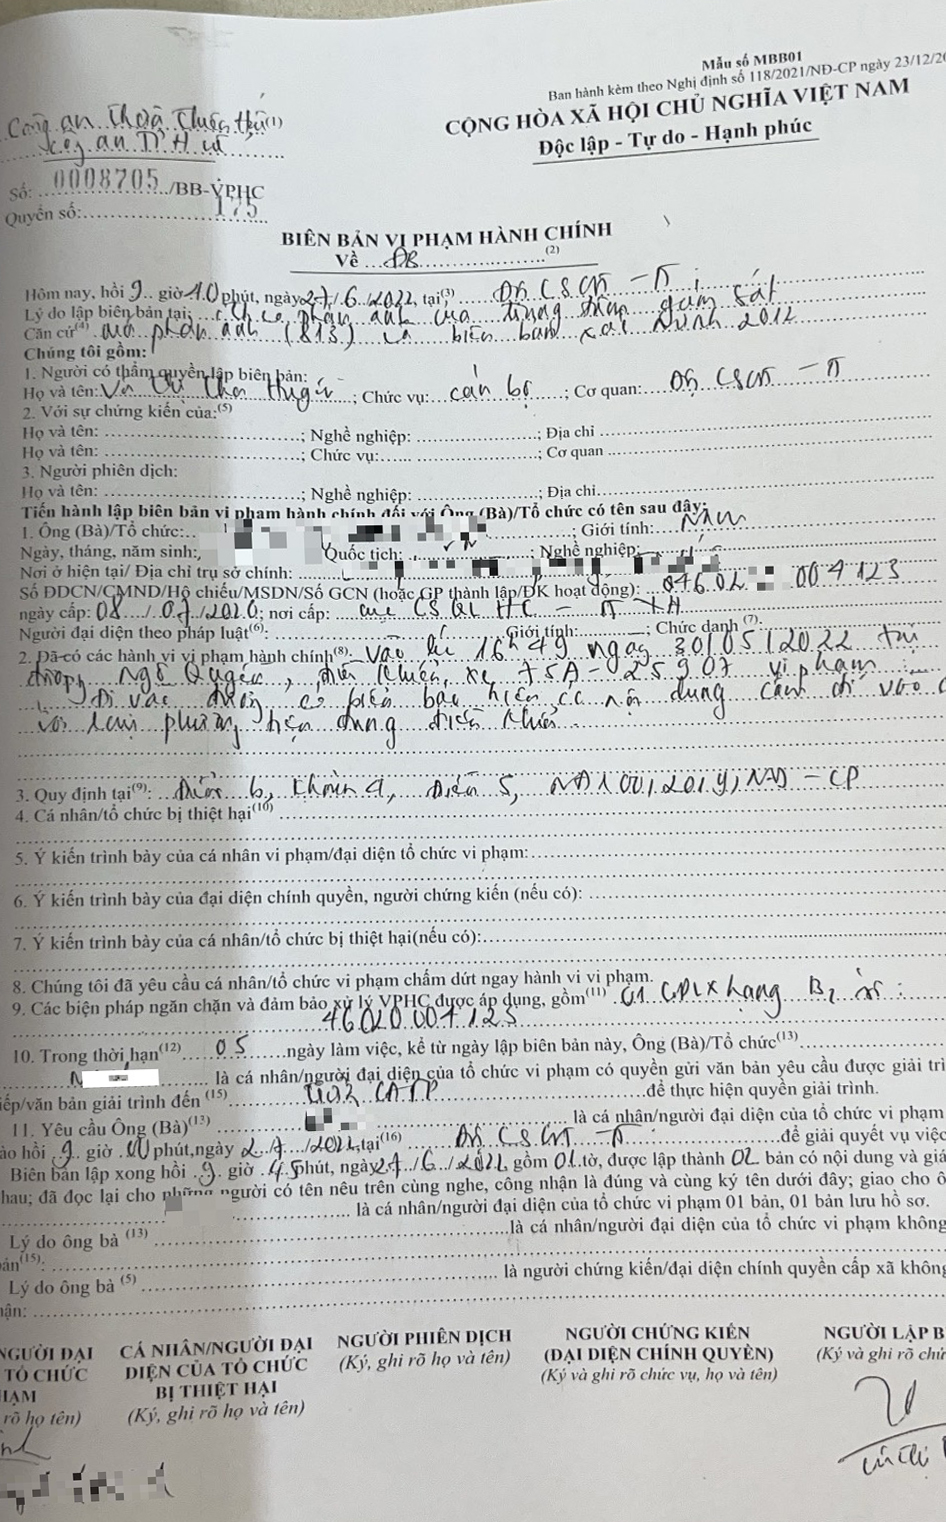 Mẫu số MBB01
Ban hành kèm theo Nghị định số 118/2021/NĐ-CP ngày 23/12/20
CỘNG HÒA XÃ HỘI CHỦ NGHĨA VIỆT NAM
Độc lập - Tự do - Hạnh phúc
Công an
Công an TP Huế
Số: 0008705/BB-VPHC
Quyển số: 175
BIÊN BẢN VI PHẠM HÀNH CHÍNH
Về ĐB (2)
Hôm nay, hồi 9 giờ 10 phút, ngày 27/6/2022, tại(3) Đội CSGT - TT
Lý do lập biên bản tại: phản ánh của trung tâm giám sát
Căn cứ(4) phản ánh (813) và biên bản xác minh 2012
Chúng tôi gồm:
1. Người có thẩm quyền lập biên bản:
Họ và tên: ; Chức vụ: cán bộ ; Cơ quan: Đội CSGT - TT
2. Với sự chứng kiến của:(5)
Họ và tên: ; Nghề nghiệp: ; Địa chỉ
Họ và tên: ; Chức vụ: ; Cơ quan
3. Người phiên dịch:
Họ và tên: ; Nghề nghiệp: ; Địa chỉ
Tiến hành lập biên bản vi phạm hành chính đối với Ông (Bà)/Tổ chức có tên sau đây:
1. Ông (Bà)/Tổ chức: ; Giới tính: Nam
Ngày, tháng, năm sinh: Quốc tịch: VN ; Nghề nghiệp:
Nơi ở hiện tại/ Địa chỉ trụ sở chính:
Số ĐDCN/CMND/Hộ chiếu/MSDN/Số GCN (hoặc GP thành lập/ĐK hoạt động): 04602 004123
ngày cấp: 08/07/2020; nơi cấp: cục CS QLHC - TTXH
Người đại diện theo pháp luật(6): Giới tính: ; Chức danh (7):
2. Đã có các hành vi vi phạm hành chính(8): vào lúc 16h49 ngày 30/05/2022 tại
đường Ngô Quyền, điều khiển xe 75A-25907 vi phạm
: Đi vào đường có biển báo hiệu có nội dung cấm đi vào đ
với loại phương tiện đang điều khiển
3. Quy định tại(9): Điểm b, khoản 4, Điều 5, NĐ100/2019/NĐ-CP
4. Cá nhân/tổ chức bị thiệt hại(10)
5. Ý kiến trình bày của cá nhân vi phạm/đại diện tổ chức vi phạm:
6. Ý kiến trình bày của đại diện chính quyền, người chứng kiến (nếu có):
7. Ý kiến trình bày của cá nhân/tổ chức bị thiệt hại(nếu có):
8. Chúng tôi đã yêu cầu cá nhân/tổ chức vi phạm chấm dứt ngay hành vi vi phạm.
9. Các biện pháp ngăn chặn và đảm bảo xử lý VPHC được áp dụng, gồm(11) 01 GPLX hạng B2 số:
46020 004123
10. Trong thời hạn(12) 05 ngày làm việc, kể từ ngày lập biên bản này, Ông (Bà)/Tổ chức(13)
là cá nhân/người đại diện của tổ chức vi phạm có quyền gửi văn bản yêu cầu được giải trì
iếp/văn bản giải trình đến (15) CATP để thực hiện quyền giải trình.
11. Yêu cầu Ông (Bà)(13) là cá nhân/người đại diện của tổ chức vi phạm
ào hồi 9 giờ 00 phút,ngày 2/7/2022,tại(16) Đội CSGT - TT để giải quyết vụ việc
Biên bản lập xong hồi 9 giờ 45 phút, ngày 27/6/2022, gồm 01 tờ, được lập thành 02 bản có nội dung và giá
hau; đã đọc lại cho những người có tên nêu trên cùng nghe, công nhận là đúng và cùng ký tên dưới đây; giao cho ô
là cá nhân/người đại diện của tổ chức vi phạm 01 bản, 01 bản lưu hồ sơ.
Lý do ông bà (13) là cá nhân/người đại diện của tổ chức vi phạm không
ản(15):
Lý do ông bà (5) là người chứng kiến/đại diện chính quyền cấp xã không
hận:
NGƯỜI ĐẠI
TỔ CHỨC
HẠM
rõ họ tên)
CÁ NHÂN/NGƯỜI ĐẠI
DIỆN CỦA TỔ CHỨC
BỊ THIỆT HẠI
(Ký, ghi rõ họ và tên)
NGƯỜI PHIÊN DỊCH
(Ký, ghi rõ họ và tên)
NGƯỜI CHỨNG KIẾN
(ĐẠI DIỆN CHÍNH QUYỀN)
(Ký và ghi rõ chức vụ, họ và tên)
NGƯỜI LẬP B
(Ký và ghi rõ chứ